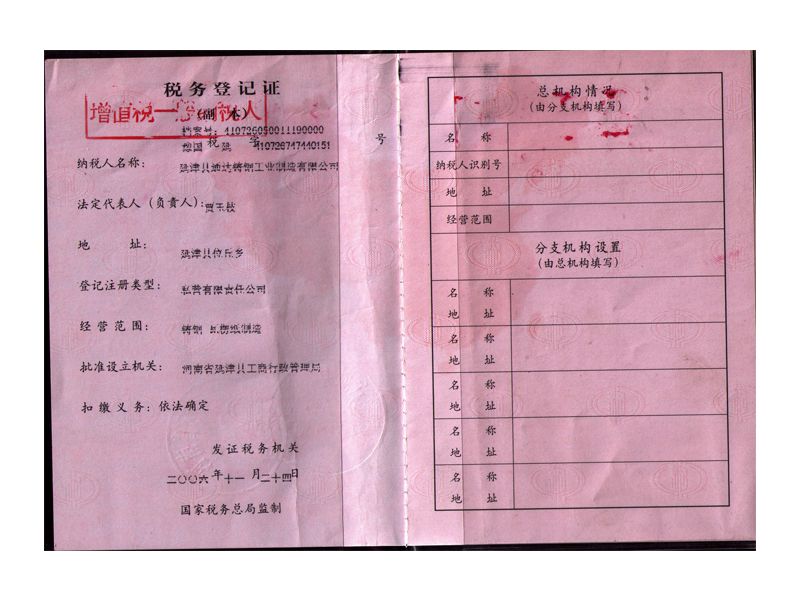 税务登记证
增值税一般纳税人
(副 本)
档案号:410726050011190000
豫国 税 延 字 410726747440151 号
纳税人名称: 延津县通达铸钢工业制造有限公司
法定代表人(负责人): 贾玉枝
地 址: 延津县位丘乡
登记注册类型: 私营有限责任公司
经 营 范 围: 铸钢
批准设立机关: 河南省延津县工商行政管理局
扣 缴 义 务: 依法确定
发证税务机关
二〇〇六 年 十一 月 二十四日
国家税务总局监制
总机构情况
(由分支机构填写)
名 称
纳税人识别号
地 址
经营范围
分支机构设置
(由总机构填写)
名 称
地 址
名 称
地 址
名 称
地 址
名 称
地 址
名 称
地 址